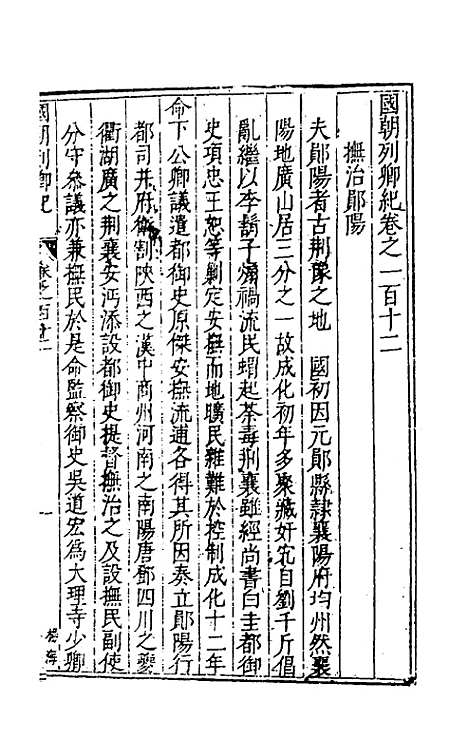 國朝列卿紀卷之一百十二
撫治鄖陽
夫鄖陽者古荆豫之地　國初因元鄖縣隸襄陽府均州然襄
陽地廣山居三分之一故成化初年多聚藏奸宄自劉千斤倡
亂繼以李鬍子煽禍流民蝟起荼毒荆襄雖經尚書白圭都御
史項忠王恕等剿定安撫而地曠民雜難於控制成化十二年
命下公卿議遣都御史原傑安撫流逋各得其所因奏立鄖陽行
都司并府衛割陝西之漢中商州河南之南陽唐鄧四川之夔
衝湖廣之荆襄安沔添設都御史提督撫治之及設撫民副使
分守叅議亦兼撫民於是命監察御史吳道宏為大理寺少卿
國朝列卿紀
卷之一百十二
一